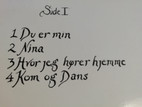 Side I
1 Du er min
2 Nina
3 Hvor jeg hører hjemme
4 Kom og Dans